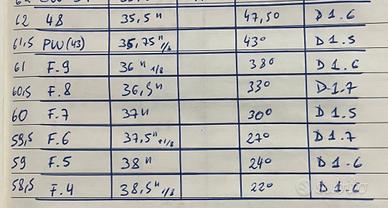 62 48 35,5" 47,50 D 1.6
61,5 PW(43) 35,75" 1/8 43° D 1.5
61 F.9 36" 1/8 38° D 1.6
60,5 F.8 36,5" 33° D 1.7
60 F.7 37" 30° D 1.5
59,5 F.6 37,5" +1/8 27° D 1.7
59 F.5 38" 24° D 1.6
58,5 F.4 38,5" 1/8 22° D 1.6